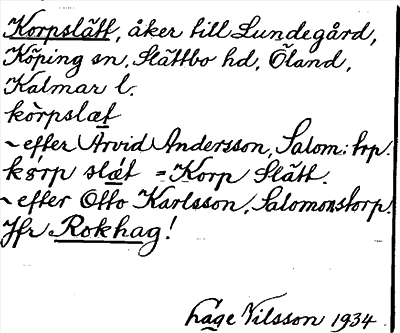 Korpslätt, åker till Lundegård,
Köping sn, Slättbo hd, Öland,
Kalmar l.
kòrpslæt
~ efter Arvid Andersson, Salom:trp.
kǫrp slǽt = Korp Slätt.
~ efter Otto Karlsson, Salomonstorp.
Jfr Rokhag!
Låge Nilsson 1934